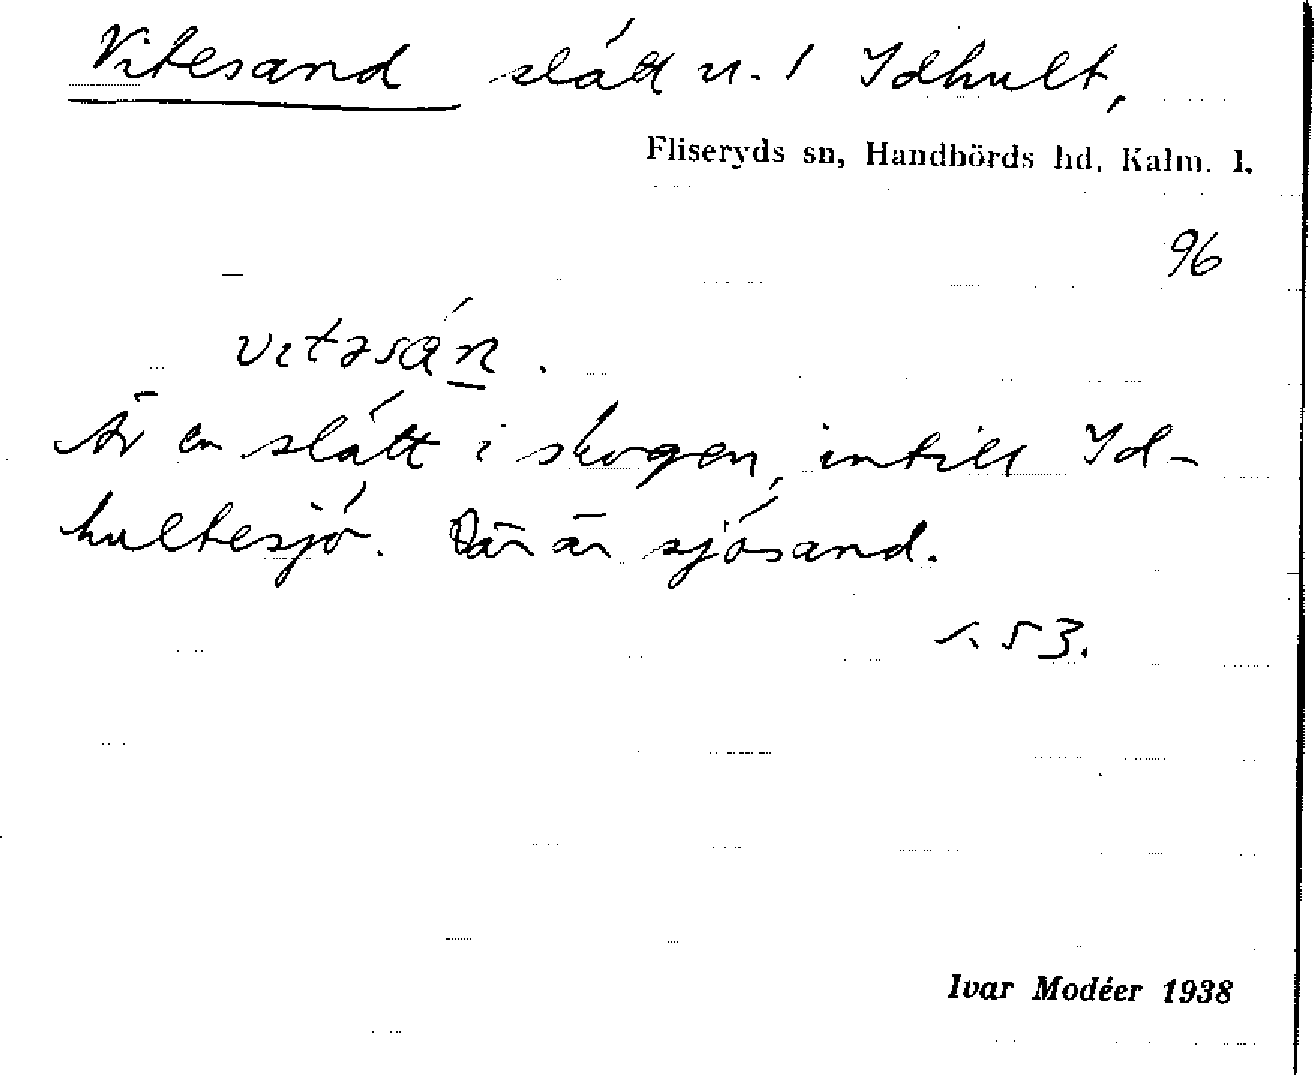 Vitesand slått n. 1 Idhult,
Fliseryds sn, Handbörds hd, Kalm. l.
96
vitəsán.
Är en slått i skogen, intill Id-
hultesjö. Där är sjösand.
s. 53.
Ivar Modéer 1938